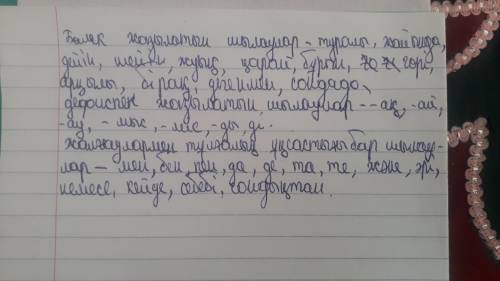 Бөлек жазылатын шылаулар - туралы, жайында,
дейін, шейін, жуық, қарай, бұрын, гөрі,
арқылы, бірақ, дегенмен, сондада.
дефиспен жазылатын шылаулар - -ақ, -ай,
-ау, - мыс, -міс, -ды, ді.
жалғаулармен тұлғалық ұқсастығы бар шылау-
лар - мен, бен, пен, да, де, та, те, және, әрі,
немесе, кейде, себебі, сондықтан.